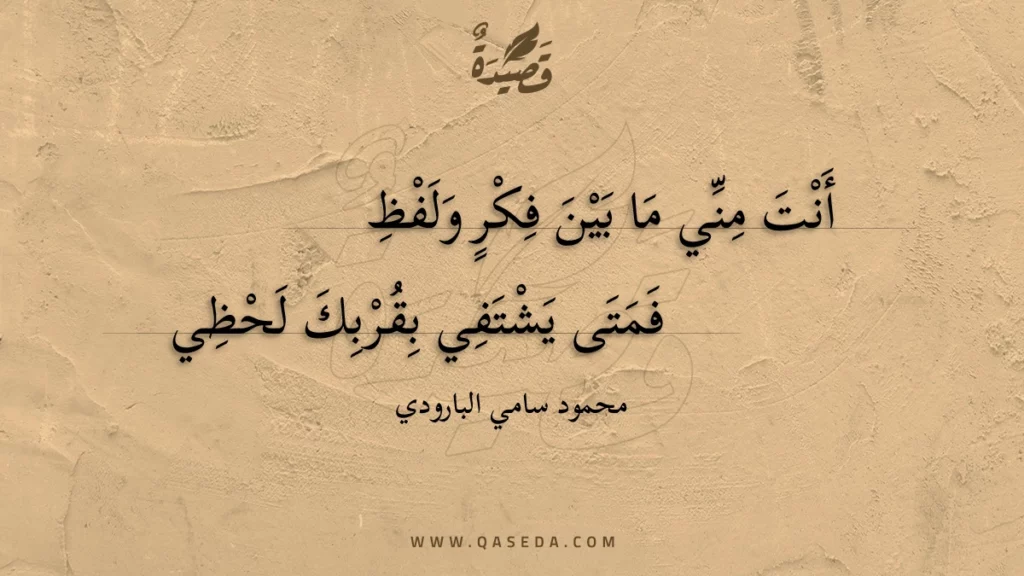 قَصِيْدَةٌ
أَنْتَ مِنِّي مَا بَيْنَ فِكْرٍ وَلَفْظِ
فَمَتَى يَشْتَفِي بِقُرْبِكَ لَحْظِي
محمود سامي البارودي
WWW.QASEDA.COM